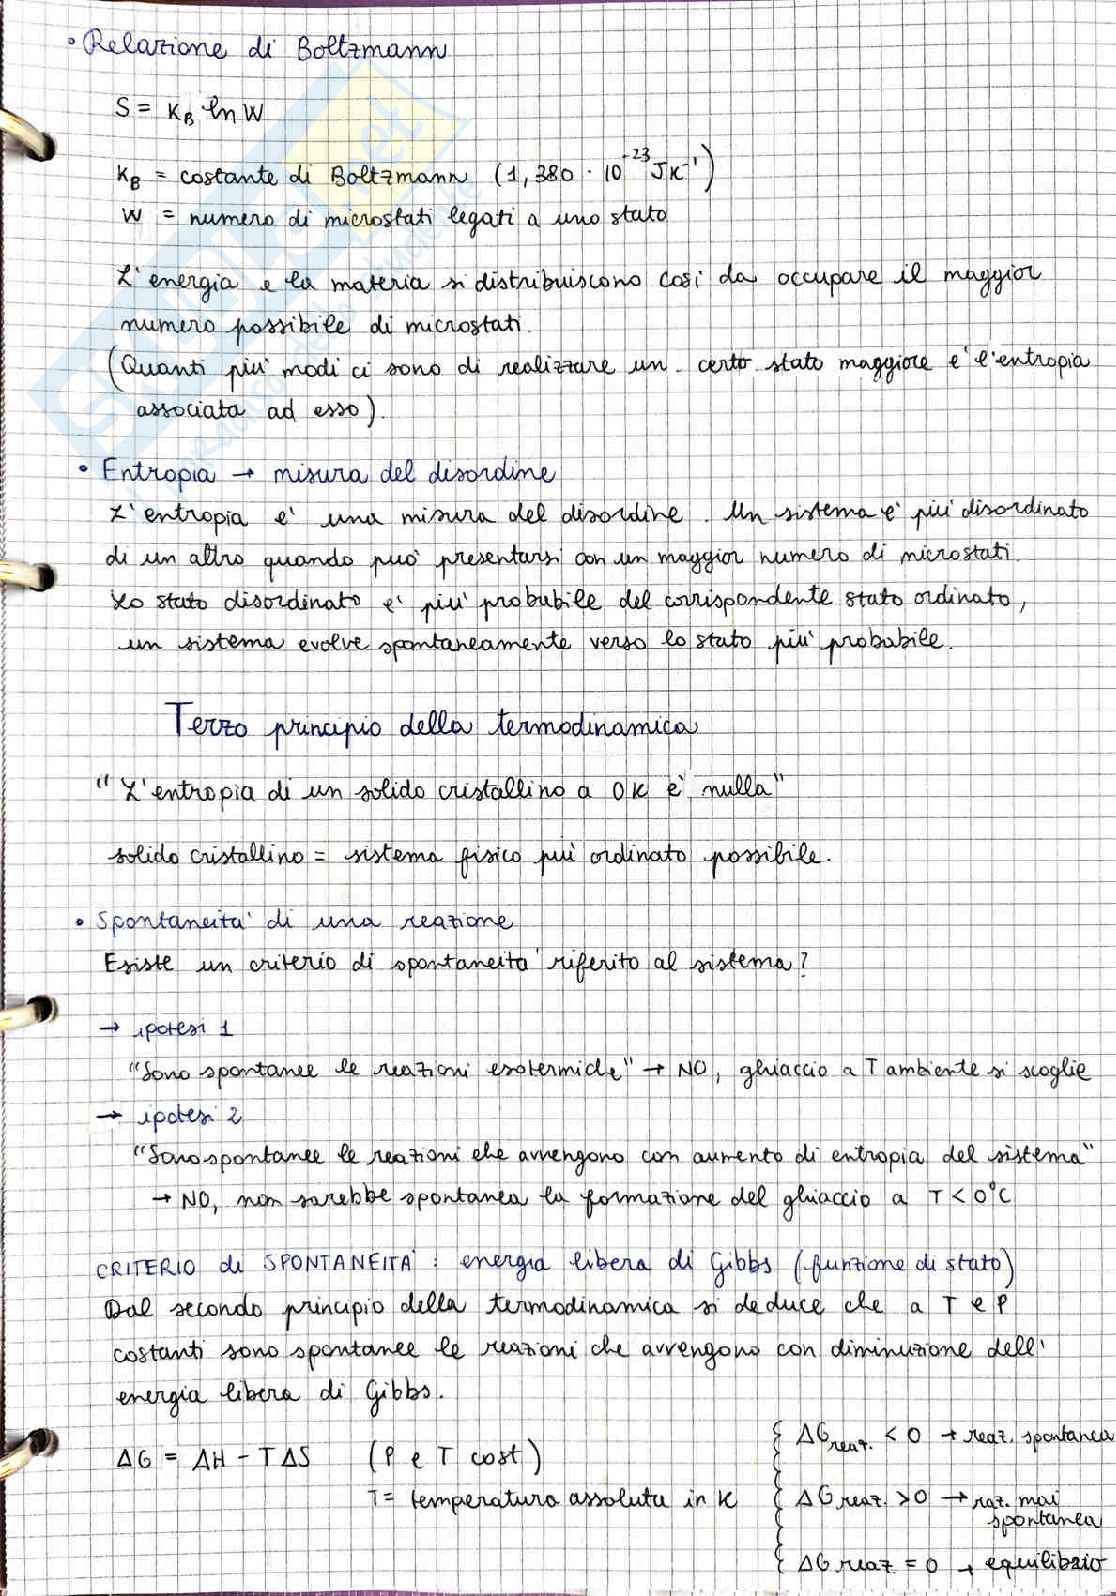 • Relazione di Boltzmann
S = KB ln W
KB = costante di Boltzmann (1,380 · 10⁻²³ JK⁻¹)
W = numero di microstati legati a uno stato
L'energia e la materia si distribuiscono così da occupare il maggior
numero possibile di microstati.
(Quanti più modi ci sono di realizzare un certo stato maggiore è l'entropia
associata ad esso).
• Entropia → misura del disordine
L'entropia è una misura del disordine. Un sistema è più disordinato
di un altro quando può presentarsi con un maggior numero di microstati.
Lo stato disordinato è più probabile del corrispondente stato ordinato,
un sistema evolve spontaneamente verso lo stato più probabile.
Terzo principio della termodinamica
"L'entropia di un solido cristallino a 0K è nulla"
solido cristallino = sistema fisico più ordinato possibile.
• Spontaneità di una reazione
Esiste un criterio di spontaneità riferito al sistema?
→ ipotesi 1
"Sono spontanee le reazioni esotermiche" → NO, ghiaccio a T ambiente si scioglie
→ ipotesi 2
"Sono spontanee le reazioni che avvengono con aumento di entropia del sistema"
→ NO, non sarebbe spontanea la formazione del ghiaccio a T < 0°C
CRITERIO di SPONTANEITÀ : energia libera di Gibbs (funzione di stato)
Dal secondo principio della termodinamica si deduce che a T e P
costanti sono spontanee le reazioni che avvengono con diminuzione dell'
energia libera di Gibbs.
ΔG = ΔH - TΔS (P e T cost)
T = temperatura assoluta in K
{ ΔGreaz. < 0 → reaz. spontanea
{ ΔGreaz. > 0 → raz. mai
spontanea
{ ΔGreaz = 0 → equilibrio